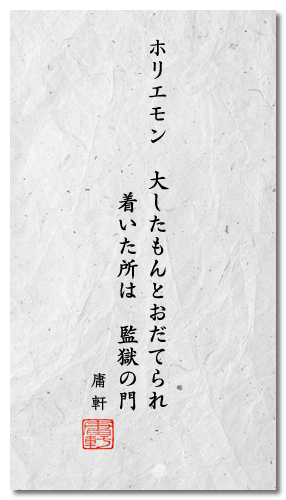 ホリエモン　大したもんとおだてられ
着いた所は　監獄の門
庸軒
庸軒